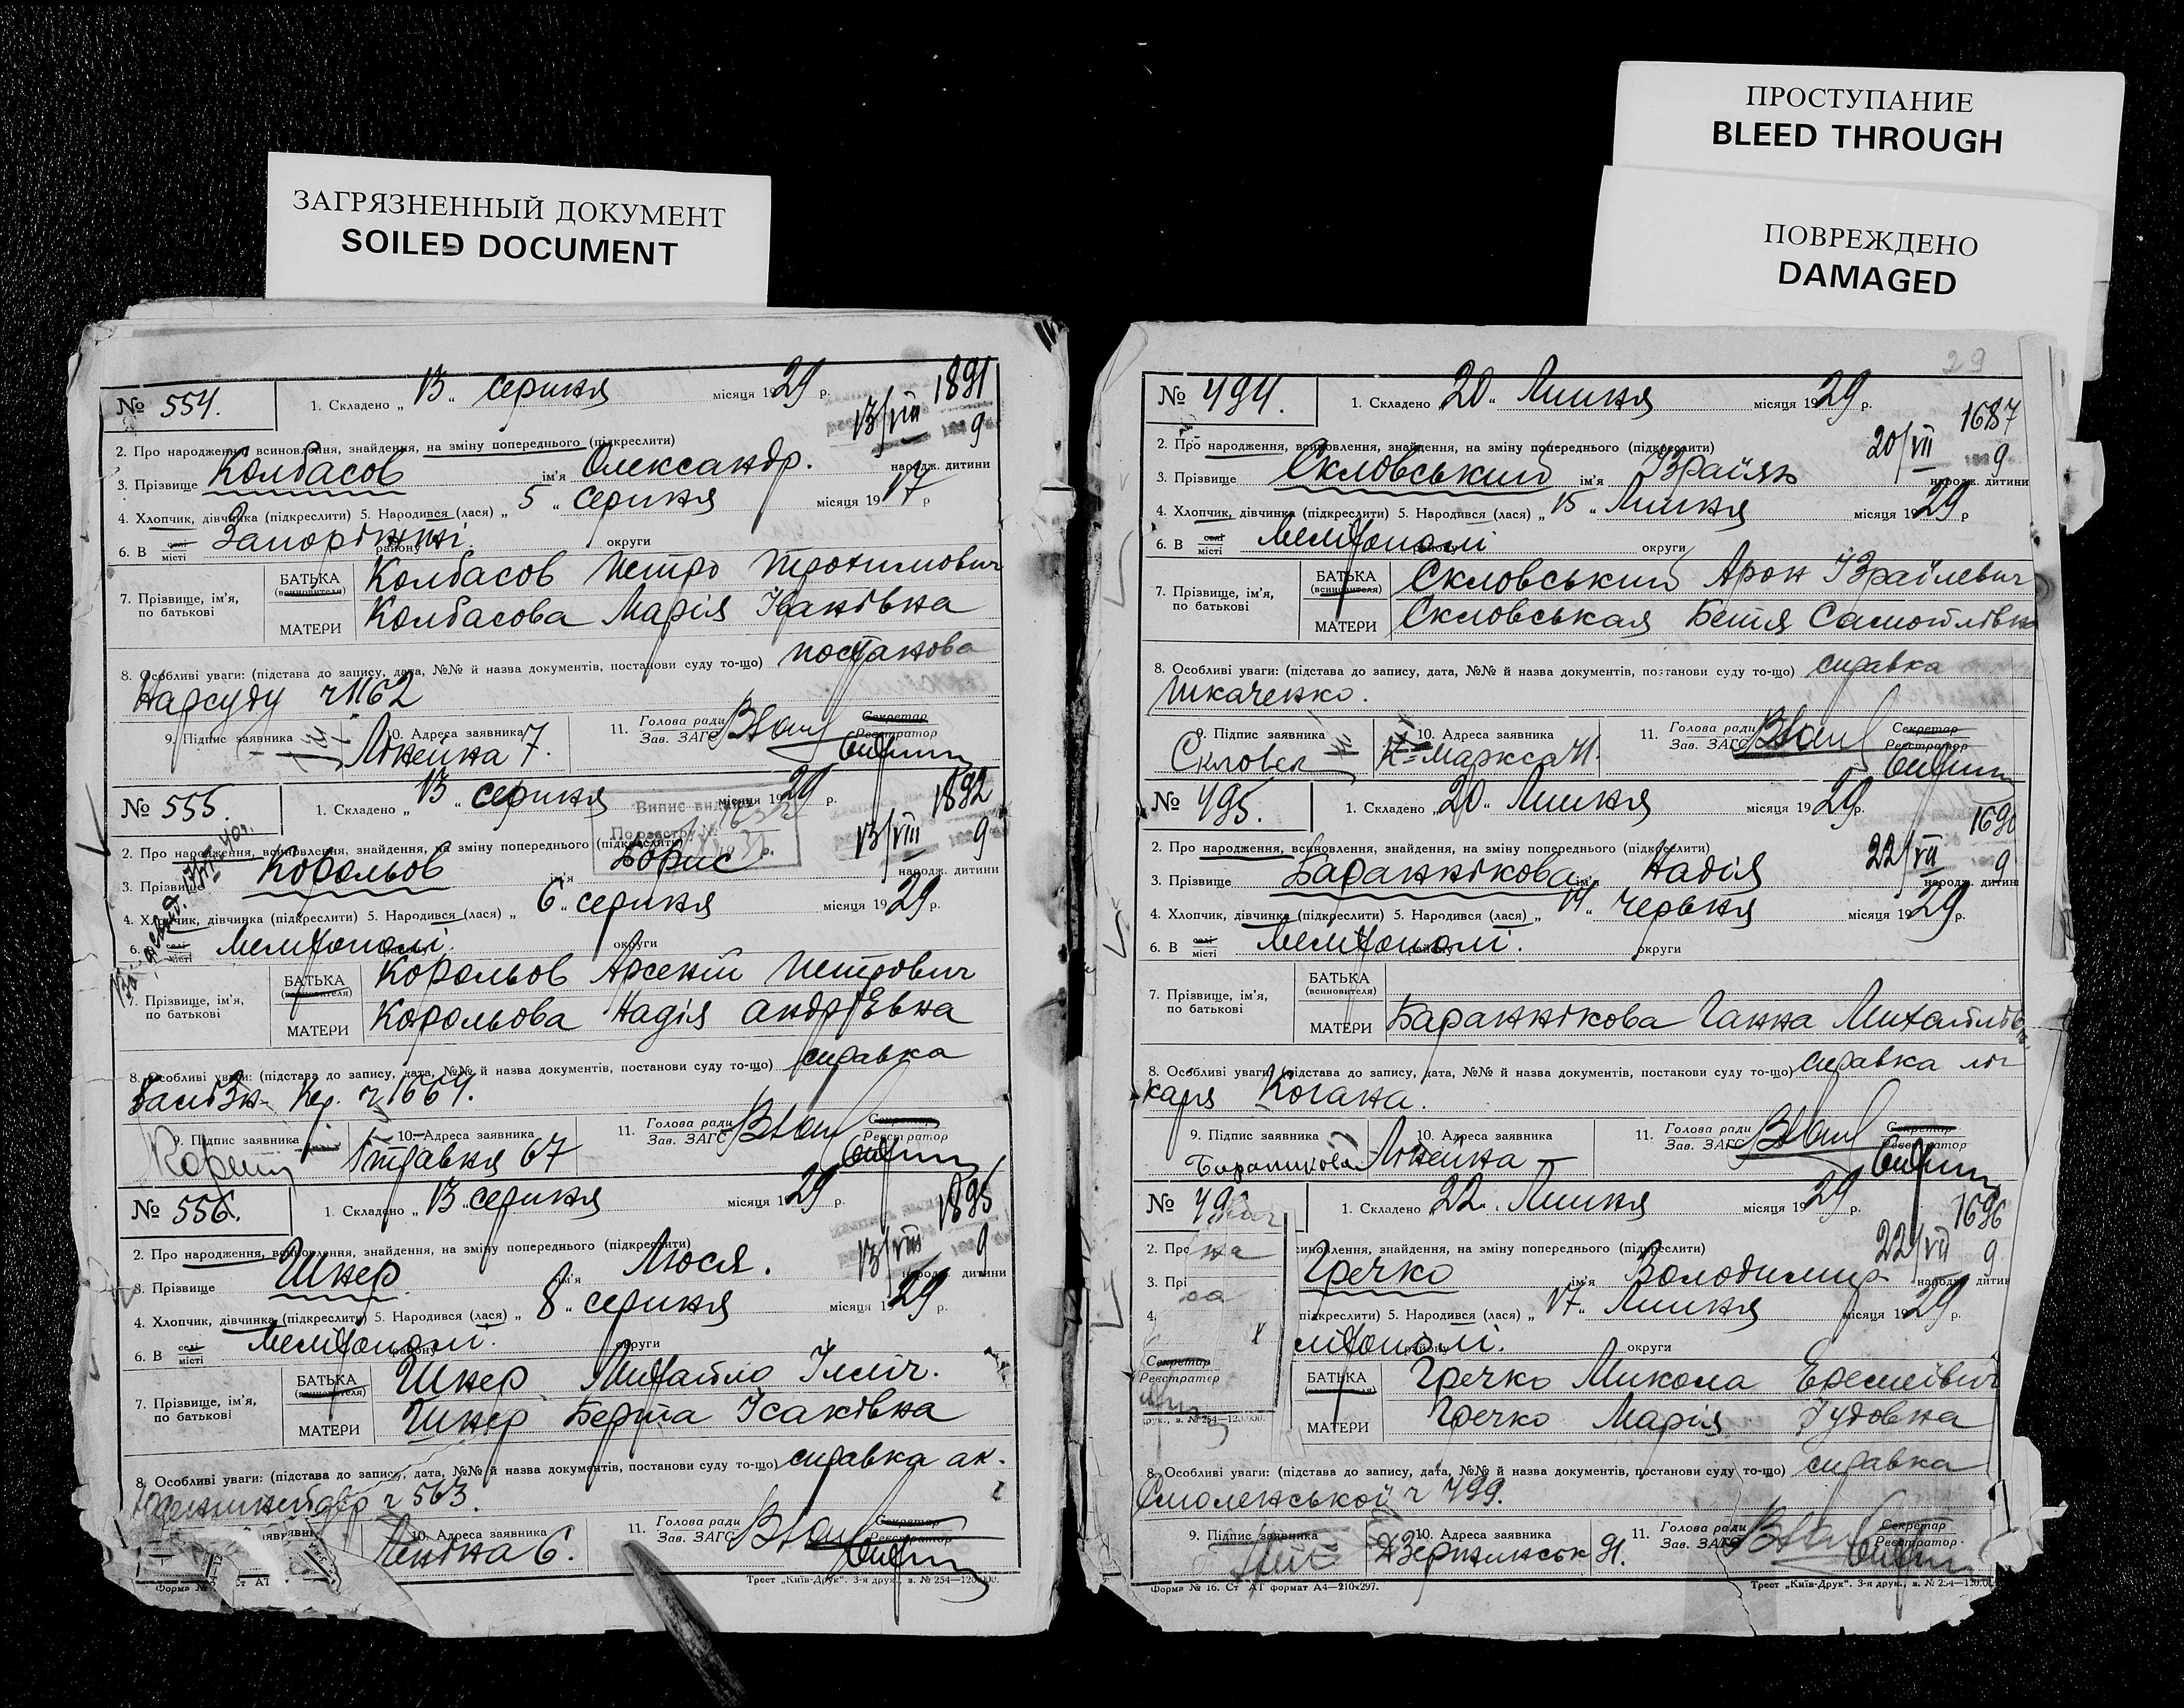 ЗАГРЯЗНЕННЫЙ ДОКУМЕНТ
SOILED DOCUMENT
ПРОСТУПАНИЕ
BLEED THROUGH
ПОВРЕЖДЕНО
DAMAGED
№ 554. 1. Складено „ 13 " серпня місяця 1929 р. 1891
13/VIII 9
2. Про народження, всиновлення, знайдення, на зміну попереднього (підкреслити)
3. Прізвище Колбасов ім'я Олександр. народж. дитини
4. Хлопчик, дівчинка (підкреслити) 5. Народився (лася) „ 5 " серпня місяця 1917 р
6. В селі місті Запоріжжі. району округи
7. Прізвище, ім'я, по батькові
БАТЬКА (всиновителя) Колбасов Петро Трохимович
МАТЕРИ Колбасова Марія Іванівна
8. Особливі уваги: (підстава до запису, дата, №№ й назва документів, постанови суду то-що) постанова
Нарсуду ч 1162
9. Підпис заявника 10. Адреса заявника Лінейна 7. 11. Голова ради Зав. ЗАГС Секретар Реєстратор
№ 555. 1. Складено „ 13 " серпня місяця 1929 р. 1892
Випис видано
По реєстру №
13/VIII 9
2. Про народження, всиновлення, знайдення, на зміну попереднього (підкреслити)
3. Прізвище Корольов ім'я Борис народж. дитини
4. Хлопчик, дівчинка (підкреслити) 5. Народився (лася) „ 6 " серпня місяця 1929 р.
6. В селі місті Мелітополі. району округи
7. Прізвище, ім'я, по батькові
БАТЬКА (всиновителя) Корольов Арсеній Петрович
МАТЕРИ Корольова Надія Андрієвна
8. Особливі уваги: (підстава до запису, дата, №№ й назва документів, постанови суду то-що) справка
ч 1664.
9. Підпис заявника 10. Адреса заявника 1 травня 67 11. Голова ради Зав. ЗАГС Секретар Реєстратор
№ 556. 1. Складено „ 13 " серпня місяця 1929 р. 1895
13/VIII 9
2. Про народження, всиновлення, знайдення, на зміну попереднього (підкреслити)
3. Прізвище Шнер ім'я Люся. народж. дитини
4. Хлопчик, дівчинка (підкреслити) 5. Народився (лася) „ 8 " серпня місяця 1929 р.
6. В селі місті Мелітополі. району округи
7. Прізвище, ім'я, по батькові
БАТЬКА (всиновителя) Шнер Михайло Ілліч.
МАТЕРИ Шнер Берта Ісаківна
8. Особливі уваги: (підстава до запису, дата, №№ й назва документів, постанови суду то-що) справка ак.
ч 563.
10. Адреса заявника Леніна 6. 11. Голова ради Зав. ЗАГС Секретар Реєстратор
Форма №
Трест „Київ-Друк". 3-я друк., з. № 254—120.000.
29
№ 494. 1. Складено „ 20 " Липня місяця 1929 р. 1687
20/VII 9
2. Про народження, всиновлення, знайдення, на зміну попереднього (підкреслити)
3. Прізвище Скловський ім'я Ізраїль народж. дитини
4. Хлопчик, дівчинка (підкреслити) 5. Народився (лася) „ 15 " Липня місяця 1929 р
6. В селі місті Мелітополі району округи
7. Прізвище, ім'я, по батькові
БАТЬКА (всиновителя) Скловський Арон Ізраїлевич
МАТЕРИ Скловськая Бетя Самойлівна
8. Особливі уваги: (підстава до запису, дата, №№ й назва документів, постанови суду то-що) справка
Ткаченко.
9. Підпис заявника 10. Адреса заявника К-Маркса 41. 11. Голова ради Зав. ЗАГС Секретар Реєстратор
№ 495. 1. Складено „ 20 " Липня місяця 1929 р. 1690
22/VII 9
2. Про народження, всиновлення, знайдення, на зміну попереднього (підкреслити)
3. Прізвище Бараннікова ім'я Надія народж. дитини
4. Хлопчик, дівчинка (підкреслити) 5. Народився (лася) „ 14 " червня місяця 1929 р.
6. В селі місті Мелітополі. району округи
7. Прізвище, ім'я, по батькові
БАТЬКА (всиновителя)
МАТЕРИ Бараннікова Ганна Михайлівна
8. Особливі уваги: (підстава до запису, дата, №№ й назва документів, постанови суду то-що) справка лі-
каря Когана.
9. Підпис заявника Бараникова 10. Адреса заявника Лінейна — 11. Голова ради Зав. ЗАГС Секретар Реєстратор
№ 49 1. Складено „ 22 " Липня місяця 1929 р. 1696
22/VII 9
2. Про на синовлення, знайдення, на зміну попереднього (підкреслити)
3. Прі Гречко ім'я Володимир народж. дитин
4. підкреслити) 5. Народився (лася) „ 17 " Липня місяця 1929 р.
літополі. району округи
Секретар
Реєстратор
друк., з. № 254—120.000.
БАТЬКА (всиновителя) Гречко Микола Еремеївич
МАТЕРИ Гречко Марія Іудовна
8. Особливі уваги: (підстава до запису, дата, №№ й назва документів, постанови суду то-що) справка
Смоленської ч 499.
9. Підпис заявника 10. Адреса заявника Дзержинськ 91. 11. Голова ради Зав. ЗАГС Секретар Реєстратор
Форма № 16. Ст АТ формат А4—210х297.
Трест „Київ-Друк". 3-я друк., з. № 254—120.0